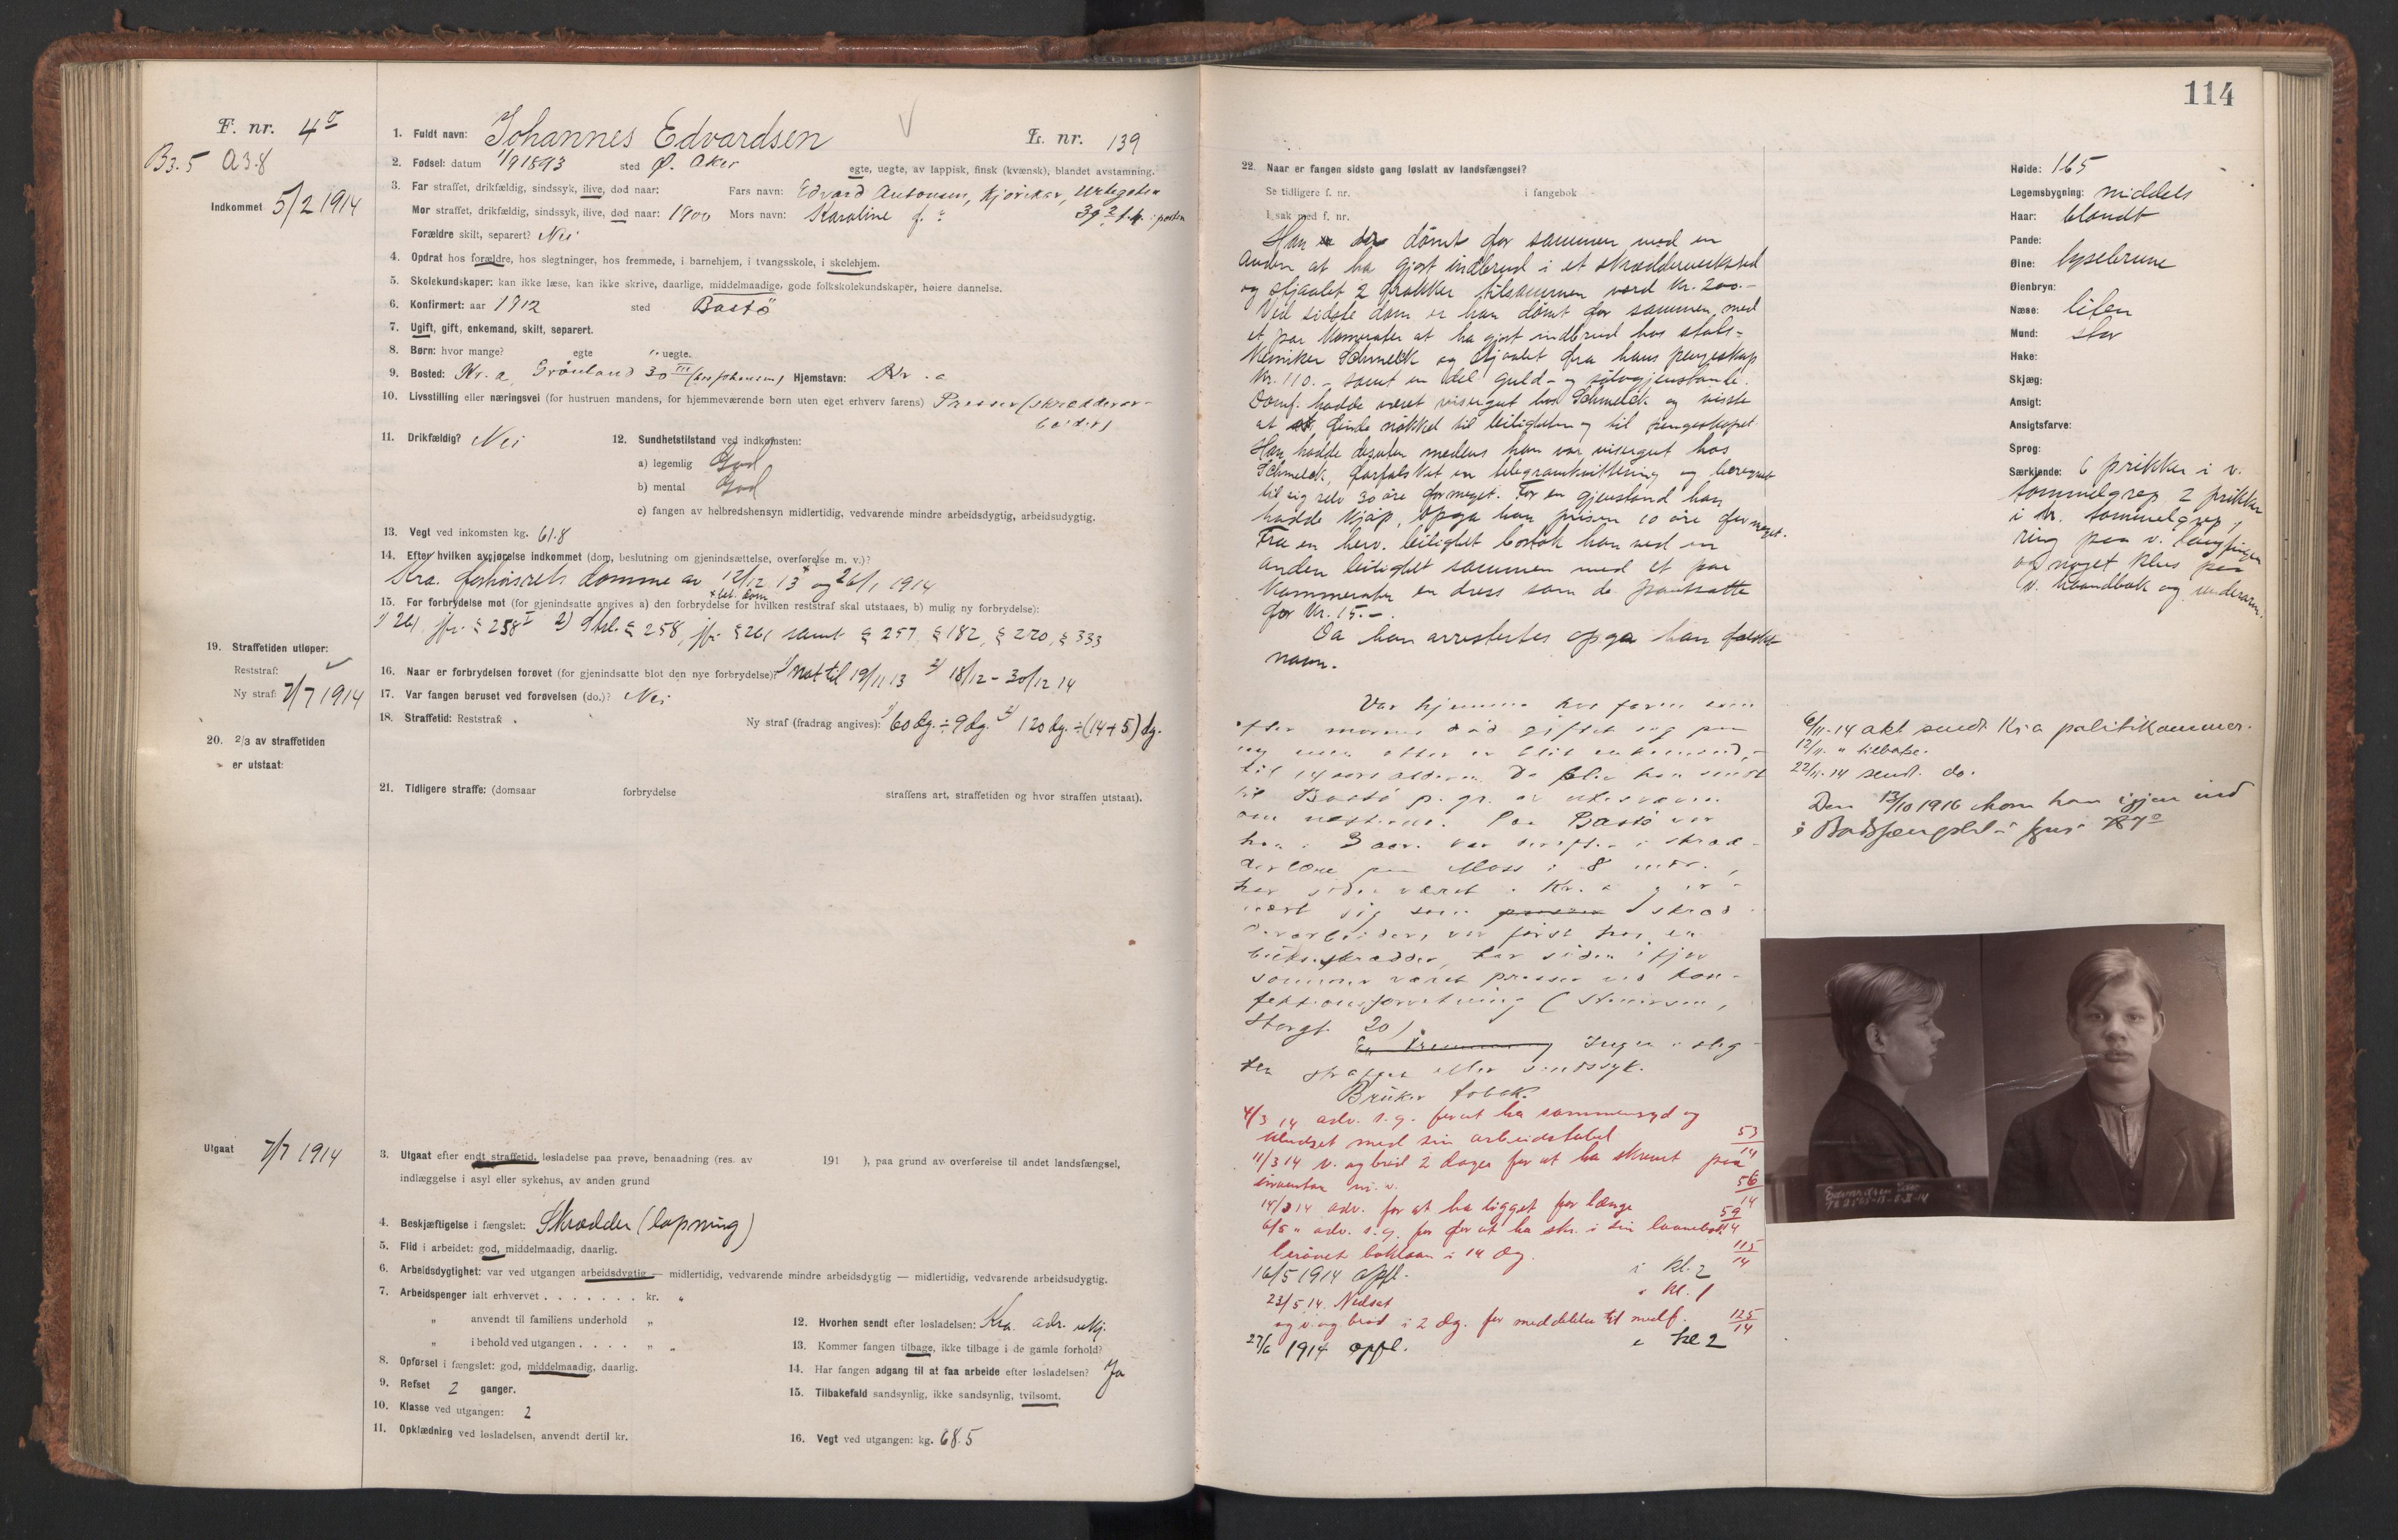 114
F. nr. 4
B3.5 A3.8
Indkommet 5/2 1914
1. Fuldt navn: Johannes Edvardsen
L. nr. 139
2. Fødsel: datum 1/9 1893 sted Ø. Aker egte, uegte, av lappisk, finsk (kvænsk), blandet avstamning.
3. Far straffet, drikfældig, sindssyk, ilive, død naar: Fars navn: Edvard Antonsen, kjørekar, Urtegaten
Mor straffet, drikfældig, sindssyk, ilive, død naar: 1900 Mors navn: Karoline f. 39
Forældre skilt, separert? Nei
4. Opdrat hos forældre, hos slegtninger, hos fremmede, i barnehjem, i tvangsskole, i skolehjem.
5. Skolekundskaper: kan ikke læse, kan ikke skrive, daarlige, middelmaadige, gode folkskolekundskaper, høiere dannelse.
6. Konfirmert: aar 1912 sted Bastø
7. Ugift, gift, enkemand, skilt, separert.
8. Børn: hvor mange? egte " uegte.
9. Bosted: Kr.a, Grønland 30 III Hjemstavn: Kr.a
10. Livsstilling eller næringsvei (for hustruen mandens, for hjemmeværende børn uten eget erhverv farens) Presser (skrædderar-
beider)
11. Drikfældig? Nei 12. Sundhetstilstand ved indkomsten:
a) legemlig God
b) mental God
c) fangen av helbredshensyn midlertidig, vedvarende mindre arbeidsdygtig, arbeidsudygtig.
13. Vegt ved inkomsten kg. 61.8
14. Efter hvilken avgjørelse indkommet (dom, beslutning om gjenindsættelse, overførelse m. v.)?
Kra. forhørsrets domme av 12/12 13 og 26/1 1914
x bet. dom
15. For forbrydelse mot (for gjenindsatte angives a) den forbrydelse for hvilken reststraf skal utstaaes, b) mulig ny forbrydelse):
1) 261 jfr. § 258 I 2) Strl. § 258, jfr. § 261 samt § 257, § 182, § 270, § 333
19. Straffetiden utløper:
Reststraf:
Ny straf: 7/7 1914
16. Naar er forbrydelsen forøvet (for gjenindsatte blot den nye forbrydelse)? 1) nat til 19/11 13 2) 18/12 - 30/12 14
17. Var fangen beruset ved forøvelsen (do.)? Nei
18. Straffetid: Reststraf: Ny straf (fradrag angives): 1) 60 dg. ÷ 9 dg. 2) 120 dg. ÷ (14+5) dg.
20. 2/3 av straffetiden
er utstaat:
21. Tidligere straffe: (domsaar forbrydelse straffens art, straffetiden og hvor straffen utstaat).
Utgaat 7/7 1914
3. Utgaat efter endt straffetid, løsladelse paa prøve, benaadning (res. av 191 ), paa grund av overførelse til andet landsfængsel,
indlæggelse i asyl eller sykehus, av anden grund
4. Beskjæftigelse i fængslet: Skrædder (lapning)
5. Flid i arbeidet: god, middelmaadig, daarlig.
6. Arbeidsdygtighet: var ved utgangen arbeidsdygtig — midlertidig, vedvarende mindre arbeidsdygtig — midlertidig, vedvarende arbeidsudygtig.
7. Arbeidspenger ialt erhvervet . . . . . . . kr. "
" anvendt til familiens underhold "
" i behold ved utgangen . . . . " "
8. Opførsel i fængslet: god, middelmaadig, daarlig.
9. Refset 2 ganger.
10. Klasse ved utgangen: 2
11. Opklædning ved løsladelsen, anvendt dertil kr.
12. Hvorhen sendt efter løsladelsen: Kra. adr. ukj.
13. Kommer fangen tilbage, ikke tilbage i de gamle forhold?
14. Har fangen adgang til at faa arbeide efter løsladelsen? Ja
15. Tilbakefald sandsynlig, ikke sandsynlig, tvilsomt.
16. Vegt ved utgangen: kg. 68.5
22. Naar er fangen sidste gang løslatt av landsfængsel?
Se tidligere f. nr. i fangebok
I sak med f. nr.
Han er dømt for sammen med en
anden at ha gjort indbrud i et skrædderverksted
og stjaalet 2 frakker tilsammen værd kr. 200.-
Ved sidste dom er han dømt for sammen med
et par kamerater at ha gjort indbrud hos stats-
kemiker Schmelck og stjaalet fra hans pengeskap
kr. 110.- samt en del guld- og sølvgjenstande.
Domf. hadde været visergut hos Schmelck og visste
at finde nøkkel til leiligheten og til pengeskapet.
Han hadde desuten medens han var visergut hos
Schmelck, forfalsket en telegramkvittering og beregnet
til sig selv 30 øre formeget. For en gjenstand han
hadde kjøp, opga han prisen 10 øre formeget.
Fra en herv. leilighet bortok han ved en
anden leilighet sammen med et par
kammerater en dress som de pantsatte
for kr. 15.-
Da han arrestertes opga han falsk
navn.
Var hjemme hos faren som
efter morens død giftet sig paa
ny men atter er blit enkemand,
til 14 aars alderen. Da blev han sendt
til Bastø p. gr. av
Paa Bastø var
han i 3 aar. Var derefter i skræd-
derlære paa Moss i 8 mdr.,
har siden været i Kr.a og er-
nært sig som skræd-
derarbeider, var først hos en
bukseskrædder, har siden i fjor
sommer været presser ved kon-
fektionsforretning (
Storgt. 20)
Ingen i sleg-
ten straffet eller sindssyk.
Bruker tobak.
4/3 14 adv. s. g. for at ha sammensyd og
med sin arbeidstabel 53/14
11/3 14 v. og brød 2 dager for at ha skrevet paa
inventar m. v. 56/14
14/3 14 adv. for at ha ligget for længe 59/14
6/5 " adv. s. g. for at ha skr. i sin laanebok
berøvet boklaan i 14 dg. 115/14
16/5 1914 opfl. i kl. 2
23/5 14. Nedsat i kl. 1
og v. og brød i 2 dg. for meddelelse til medf. 125/14
27/6 1914 opfl. i kl 2
Høide: 165
Legemsbygning: middels
Haar: blondt
Pande:
Øine: lysebrune
Øienbryn:
Næse: liten
Mund: stor
Hake:
Skjæg:
Ansigt:
Ansigtsfarve:
Sprog:
Særkjende: 6 prikker i v.
tommelgrep, 2 prikker
i h. tommelgrep,
ring paa v. langfinger
og noget klus paa
v. haandbak og underarm.
6/11-14 akt sendt Kr.a politikammer.
12/11 - " tilbake.
22/11-14 sendt do.
Den 13/10 1916 kom han igjen ind
i Botsfængslet
Edvardsen